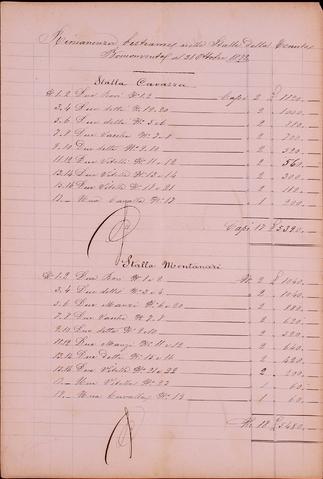 Rimanenza bestiame nelle Stalle della Tenuta
al 21 Ottobre 1873
Stalla Cavazza
N. 1.2 Due Bovi N. 1.2 Capi 2 £ 1120.-
3.4 Due detti N. 19.20 " 2 " 1000.-
5.6 Due detti N. 5 e 6 " 2 "
7.8 Due Vacche N. 7.8 " 2 " 700.-
9.10 Due dette N. 9.10 " 2 " 520.-
11.12 Due Vitelli N. 11 e 12 " 2 " 560.-
13.14 Due Vitelli N. 13 e 14 " 2 " 300.-
15.16 Due Vitelli N. 15 e 21 " 2 "
17.- Una Cavalla N. 17 " 1 " 200.-
Capi 17 £ 5320.-
Stalla Montanari
N. 1.2 Due Bovi N. 1 e 2 N. 2 £ 1040.-
3.4 Due detti N. 3 e 4 " 2 " 1040.-
5.6 Due Manzi N. 6 e 20 " 2 "
7.8 Due Vacche N. 7.8 " 2 " 640.-
9.10 Due dette N. 9 e 10 " 2 "
11.12 Due Manzi N. 11 e 12 " 2 " 640.-
13.14 Due dette N. 15 e 16 " 2 " 420.-
15.16 Due Vitelli N. 21 e 22 " 2 " 200.-
17.- Un Vitello N. 23 " 1 " 60.-
Una Cavalla N. 13 " 1 " 60.-
N. 18 £ 5480.-